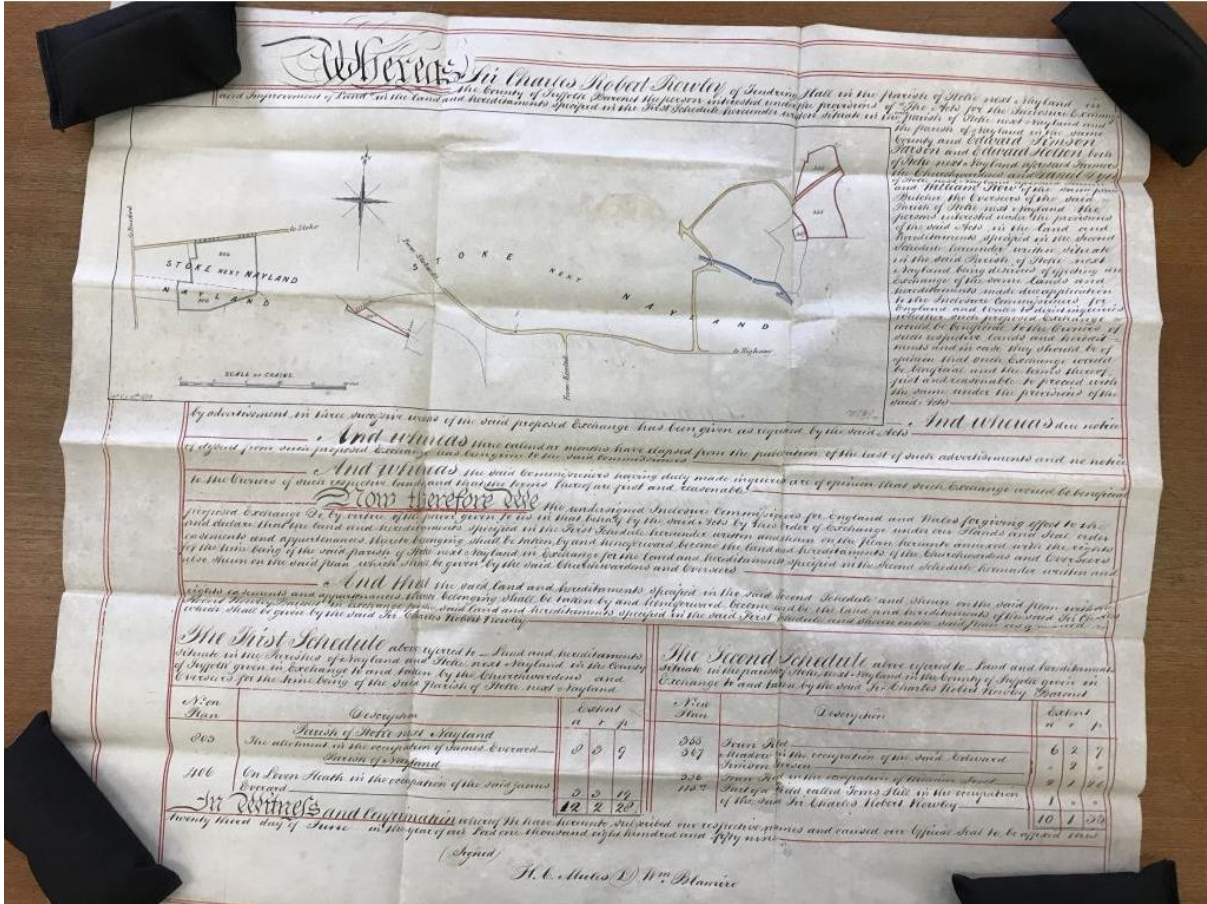 Whereas Sir Charles Robert Rowley of Tendring Hall in the parish of Stoke next Nayland in
the County of Suffolk Baronet the person interested under the provisions of "The Acts for the Inclosure Exchange
and Improvement of Land" in the land and hereditaments specified in the First Schedule hereunder written situate in the parish of Stoke next Nayland and
the parish of Nayland in the same
County and Edward Timson
Parson and Edward Holton both
of Stoke next Nayland aforesaid Farmers
the Churchwardens and
of Stoke next Nayland
and William How of the same place
Butcher the Overseers of the said
Parish of Stoke next Nayland the
persons interested under the provisions
of the said Acts in the Land and
hereditaments specified in the Second
Schedule hereunder written situate
in the said Parish of Stoke next
Nayland being desirous of effecting an
Exchange of the same lands and
hereditaments made due application
to the Inclosure Commissioners for
England and Wales to
whether such proposed Exchange
would be beneficial to the Owners of
such respective lands and heredita-
ments and in case they should be of
opinion that such Exchange would
be beneficial and the terms thereof
just and reasonable to proceed with
the same under the provisions of the
said Acts
to Stoke
STOKE NEXT NAYLAND
NAYLAND
SCALE OF CHAINS
STOKE NEXT NAYLAND
to Higham
by advertisement in three successive weeks of the said proposed Exchange has been given as required by the said Acts And whereas due notice
And whereas three calendar months have elapsed from the publication of the last of such advertisements and no notice
of dissent from such proposed Exchange has been given to the said Commissioners
And whereas the said Commissioners having duly made inquiries are of opinion that such Exchange would be beneficial
to the Owners of such respective lands and that the terms thereof are just and reasonable
Now therefore We the undersigned Inclosure Commissioners for England and Wales for giving effect to the
proposed Exchange Do by virtue of the power given to us in that behalf by the said Acts by this Order of Exchange under our Hands and Seal order
and declare that the land and hereditaments specified in the First Schedule hereunder written and shewn on the plan hereunto annexed with the rights
easements and appurtenances thereto belonging shall be taken by and henceforward become the land and hereditaments of the Churchwardens and Overseers
for the time being of the said parish of Stoke next Nayland in Exchange for the land and hereditaments specified in the Second Schedule hereunder written and
also shewn on the said plan which shall be given by the said Churchwardens and Overseers
And that the said land and hereditaments specified in the said Second Schedule and shewn on the said plan with the
rights easements and appurtenances thereto belonging shall be taken by and henceforward become and be the land and hereditaments of the said Sir Charles
Robert Rowley Baronet in exchange for the said land and hereditaments specified in the said First Schedule and shewn on the said plan as aforesaid
which shall be given by the said Sir Charles Robert Rowley
The First Schedule above referred to – Land and hereditaments
situate in the Parishes of Nayland and Stoke next Nayland in the County
of Suffolk given in Exchange to and taken by the Churchwardens and
Overseers for the time being of the said Parish of Stoke next Nayland
No. on Plan Description Extent a r p
Parish of Stoke next Nayland
803 The allotment in the occupation of James Everard 8 3 9
Parish of Nayland
406 On Leven Heath in the occupation of the said James
Everard 3 3 19
12 2 28
The Second Schedule above referred to – Land and hereditaments
situate in the parish of Stoke next Nayland in the County of Suffolk given in
Exchange to and taken by the said Sir Charles Robert Rowley Baronet
No. on Plan Description Extent a r p
Town
Meadow in the occupation of the said Edward
Timson Parson
in the occupation of
Part of a Field called Toms Hill in the occupation
of the said Sir Charles Robert Rowley
In Witness and Confirmation whereof We have hereunto subscribed our respective names and caused our Official Seal to be affixed this
twenty third day of June in the year of our Lord one thousand eight hundred and fifty nine
(Signed)
H. C. Mules (L) Wm Blamire